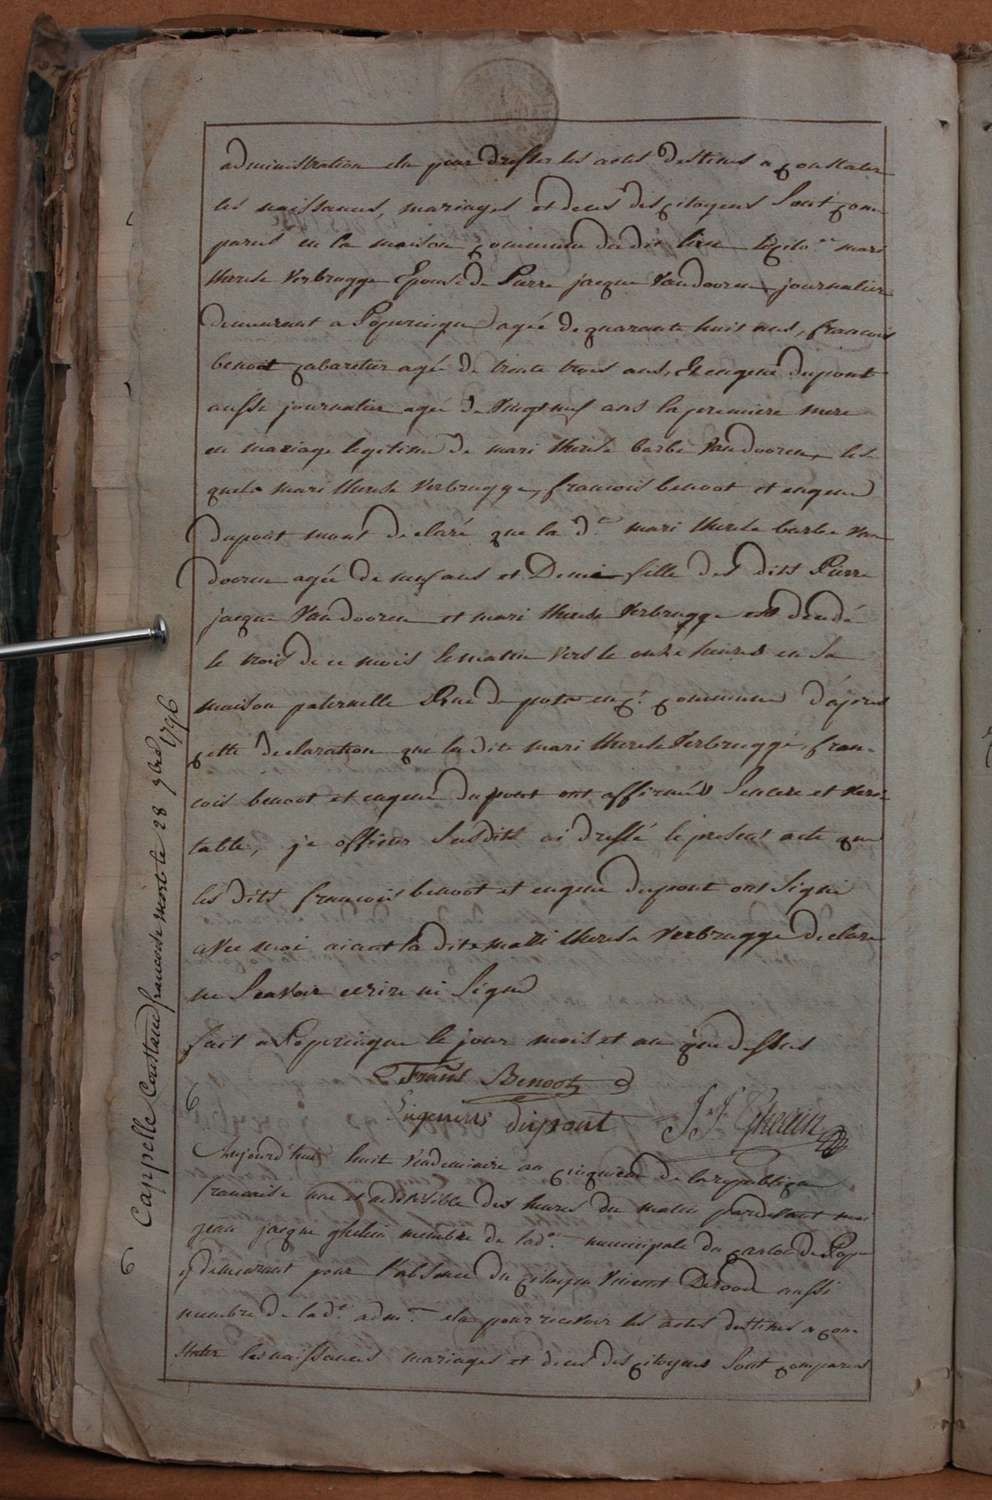 administration elu pour dresser les actes destinés a constater
les naissances, mariages et deces des citoyens Sont com
parus en la maison commune du dit lieu la cito.ne mari
therese Verbrugge Epouse de Pierre jacque Vandooren journalier
demeurant a Poperingue agée de quarante huit ans, francois
benoot cabaretier agé de trente trois ans, et eugene dupont
aussi journalier agé de vingt neuf ans la premiere mere
en mariage legitime de mari therese barbe Vandooren, les
quels mari therese Verbrugge, francois benoot et eugene
dupont mont declaré que la d.te mari therese barbe van
dooren agée de neuf ans et Demie fille des dits Pierre
jacque Vandooren et mari therese Verbrugge est décédé
le trois de ce mois le matin vers le onze heures en sa
maison paternelle Rue de commune d'apres
cette declaration que la dite mari therese Verbrugge, fran-
cois benoot et eugene dupont ont affirmés Sincere et veri
table, je officier Susdits ai dressé le present acte que
les dits francois benoot et eugene dupont ont Signé
avec moi aiant la dite marri therese Verbrugge declare
ne Scavoir ecrire ni Signé
fait a Poperingue le jour mois et an que dessus
Frans Benoot
Eugenius dupont J. J. Ghelein
6
Aujourd'hui huit vendemiaire an cinquieme de la republique
francaise une et indivisible des heures du matin pardevant moi
jean jacque ghelein membre de l'ad.on municipale du canton de Pope
demeurant pour l'absence du citoyen vincent Deroo aussi
membre de lad.e adm.on elu pour recevoir les actes destinés a con-
stater les naissances mariages et deces des citoyens sont comparus
6 Cappelle Constance francoise morte le 28 7bre 1796